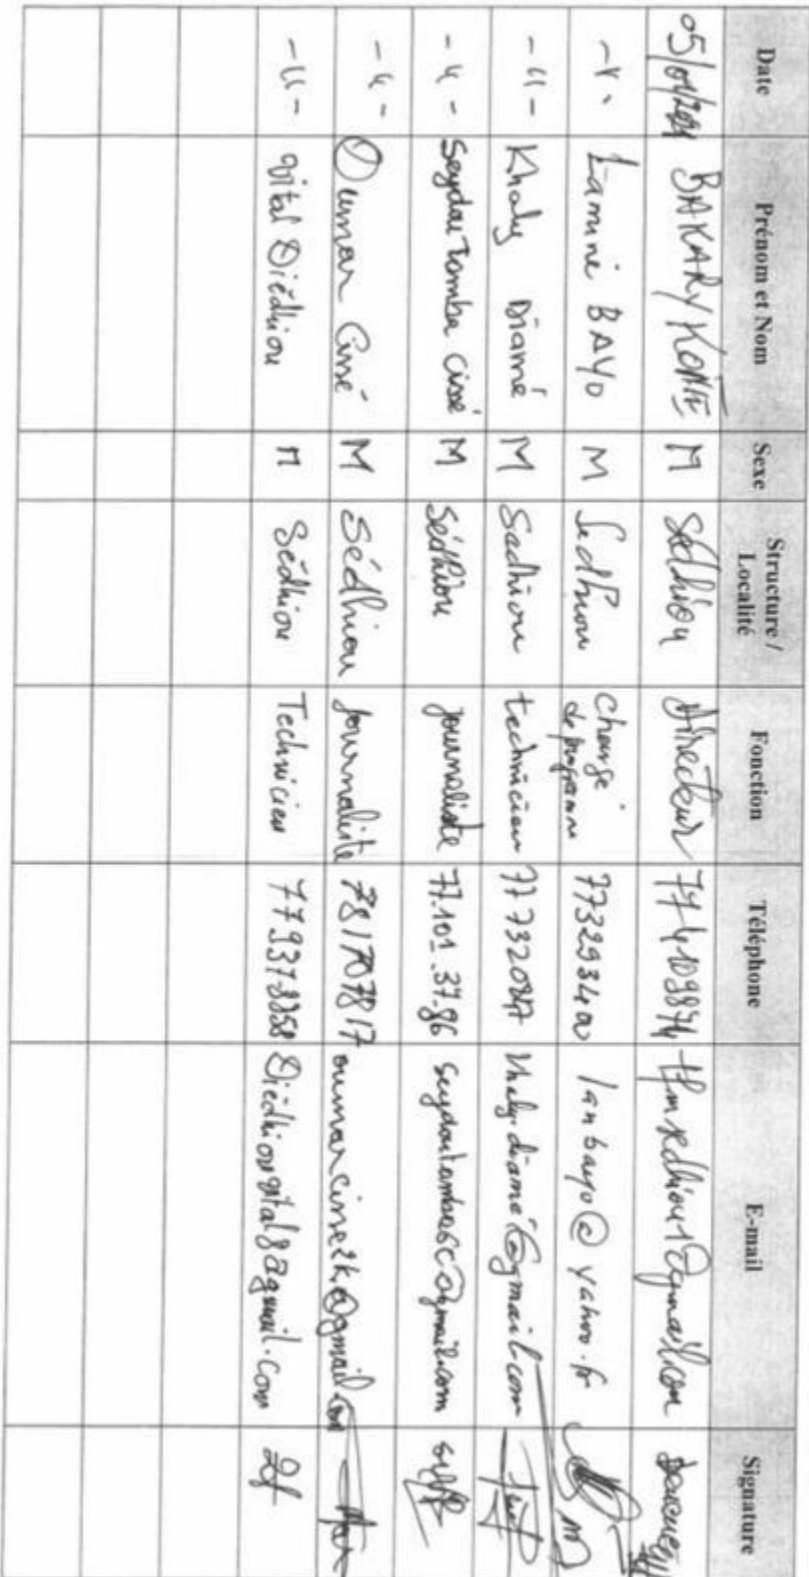 Date Prénom et Nom Sexe Structure / Localité Fonction Téléphone E-mail Signature
05/01/2021 BAKARY KONTE M Sédhiou Directeur 774109874
-"- Lamine BAYO M Sedhiou chargé de programme 773293400 lanbayo@yahoo.fr
-"- Khaly Diamé M Sédhiou technicien khaly.diamé@gmail.com
-"- Seydou Tomba Cissé M Sédhiou journaliste 77.101.37.86 seydoutomba6c@gmail.com
-"- Oumar Cissé M Sédhiou journaliste 781707817 oumarcisse2k@gmail.com
-"- Vital Diédhiou M Sédhiou Technicien Diédhiouvital8@gmail.com